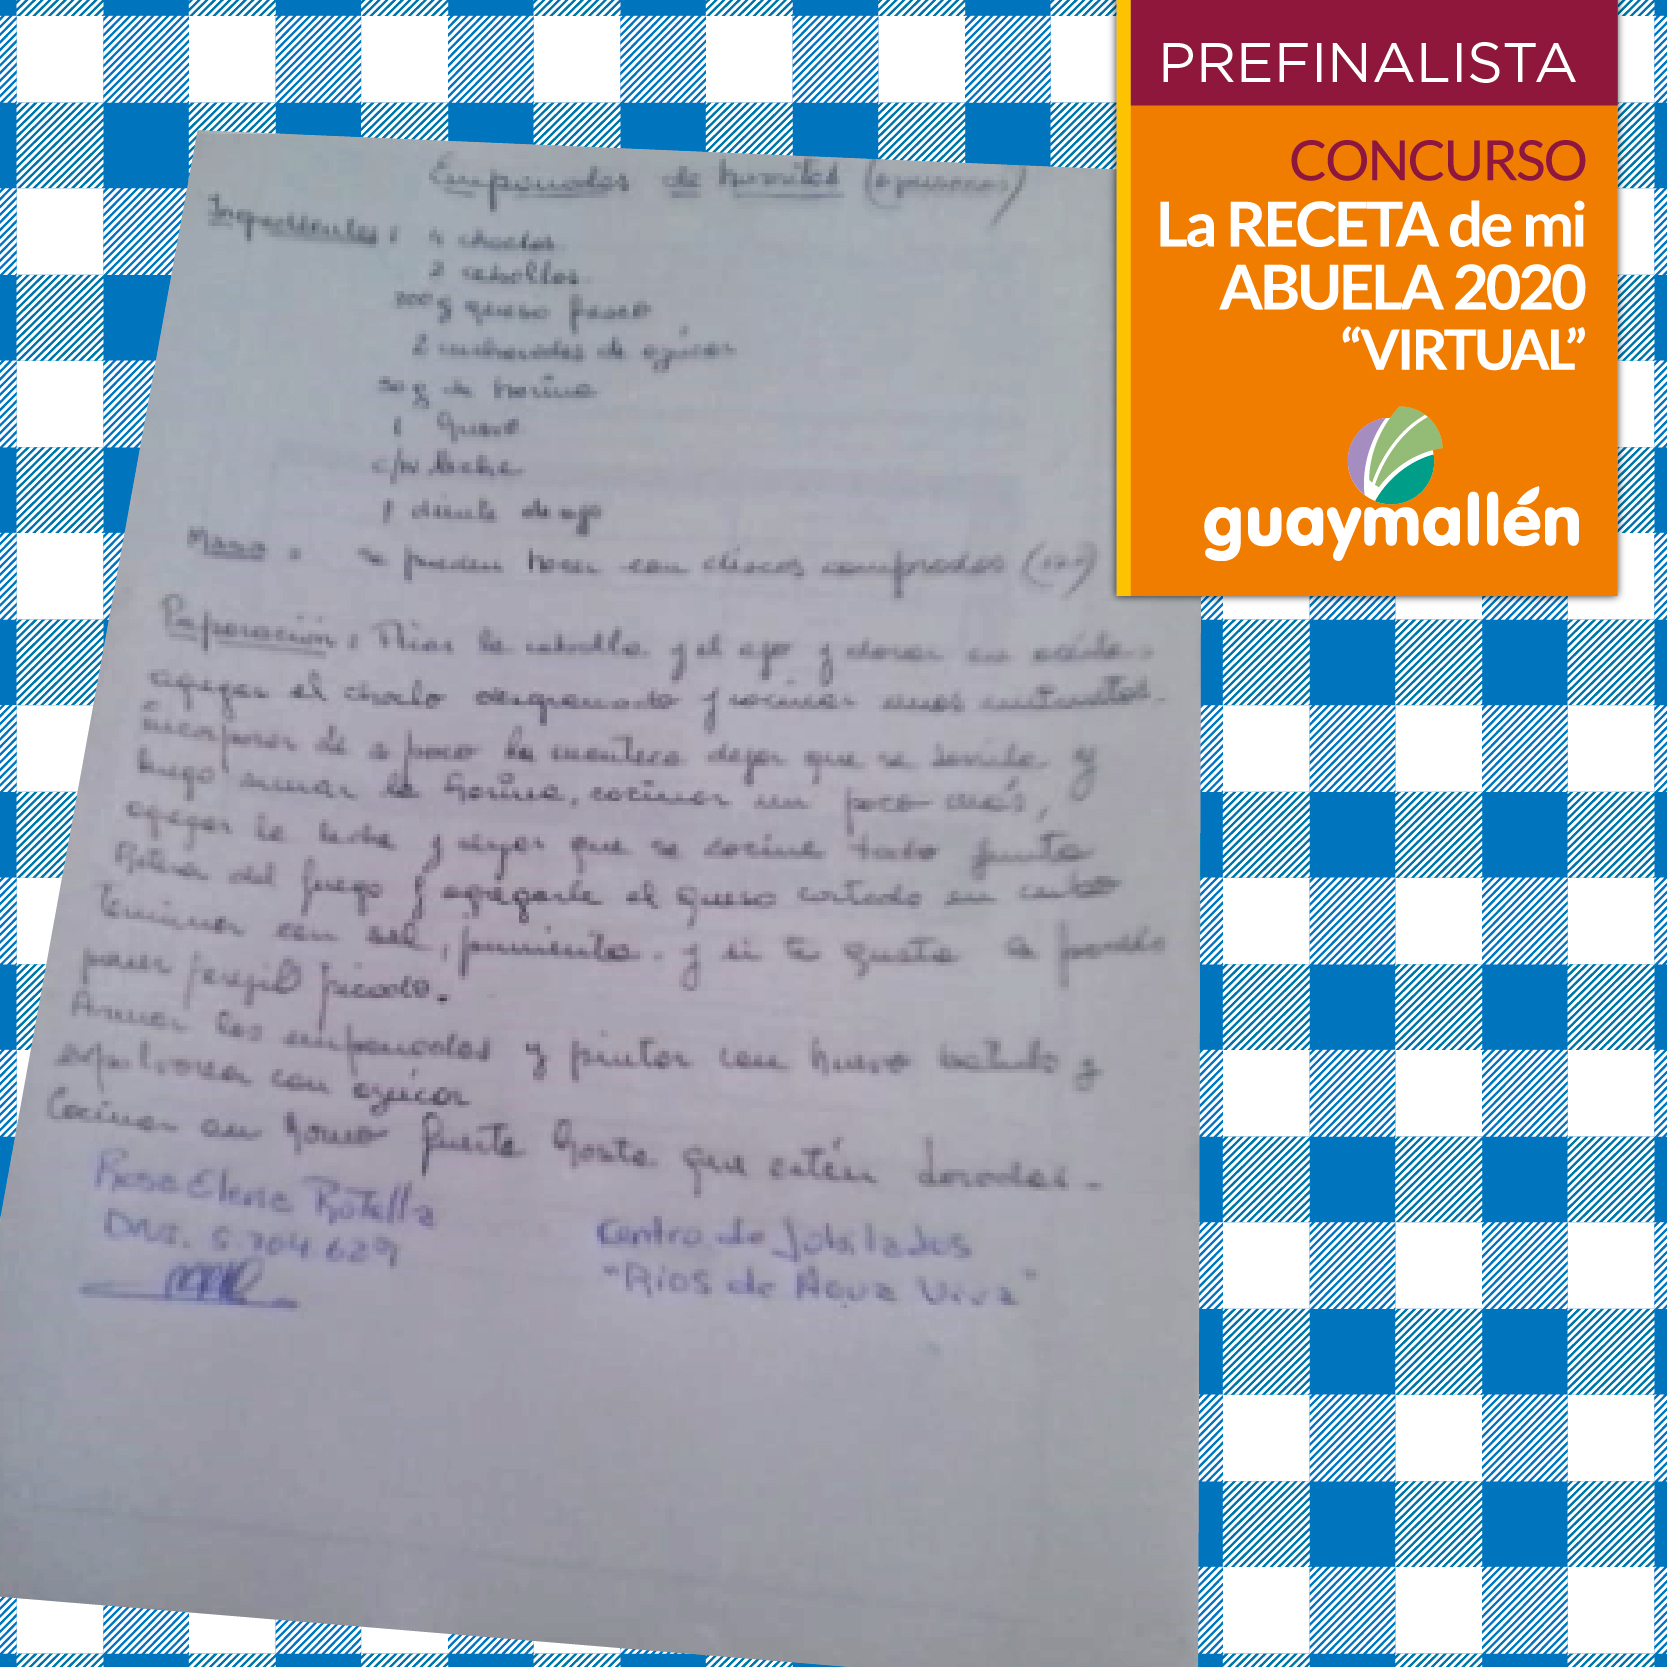 Empanadas de humitas (4 personas)
Ingredientes: 4 choclos
2 cebollas
queso fresco
2 cucharadas de azúcar
50 g de harina
1 huevo
c/n leche
1 diente de ajo
Masa: se pueden hacer con discos comprados
Preparación: Picar la cebolla y el ajo y dorar en aceite.
agregar el choclo desgranado y cocinar unos minutitos.
incorporar de a poco la manteca dejar que se derrita y
luego sumar la harina, cocinar un poco más,
agregar la leche y dejar que se cocine todo junto
Retirar del fuego y agregarle el queso cortado en cubo
terminar con sal, pimienta. y si te gusta le pondés
poner perejil picado.
Armar las empanadas y pintar con huevo batido y
espolvorear con azúcar
Cocinar en horno fuerte hasta que estén doradas.
Rosa Elena Rotella
DNI. 5.704.629
Centro de Jubilados
"Rios de Agua Viva"
PREFINALISTA
CONCURSO
La RECETA de mi
ABUELA 2020
“VIRTUAL”
guaymallén